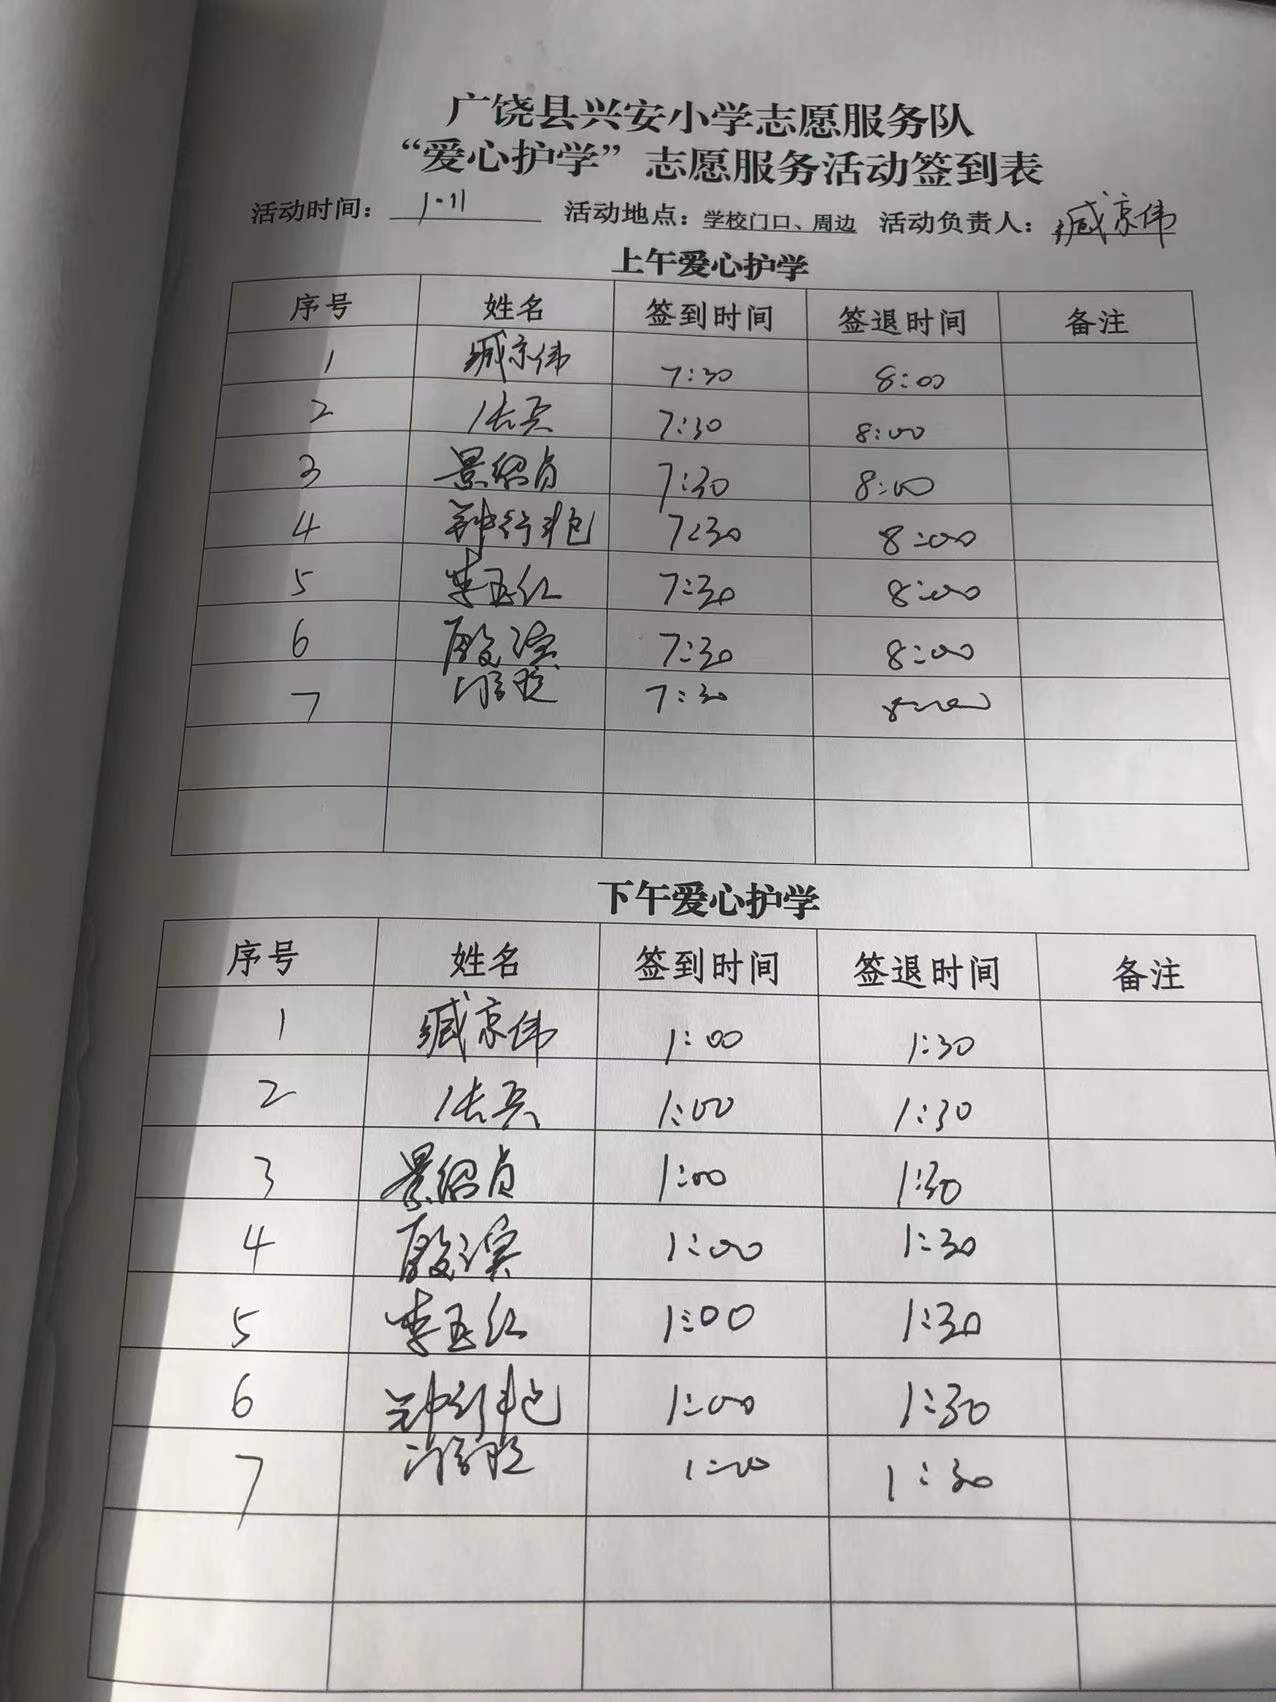 广饶县兴安小学志愿服务队
“爱心护学”志愿服务活动签到表
活动时间： 1.11 活动地点：学校门口、周边 活动负责人： 臧京伟
上午爱心护学
序号 姓名 签到时间 签退时间 备注
1 臧京伟 7:30 8:00
2 张兵 7:30 8:00
3 景绍贞 7:30 8:00
4 7:30 8:00
5 李玉红 7:30 8:00
6 殷滨 7:30 8:00
7 7:30 8:00
下午爱心护学
序号 姓名 签到时间 签退时间 备注
1 臧京伟 1:00 1:30
2 张兵 1:00 1:30
3 景绍贞 1:00 1:30
4 殷滨 1:00 1:30
5 李玉红 1:00 1:30
6 1:00 1:30
7 1:00 1:30